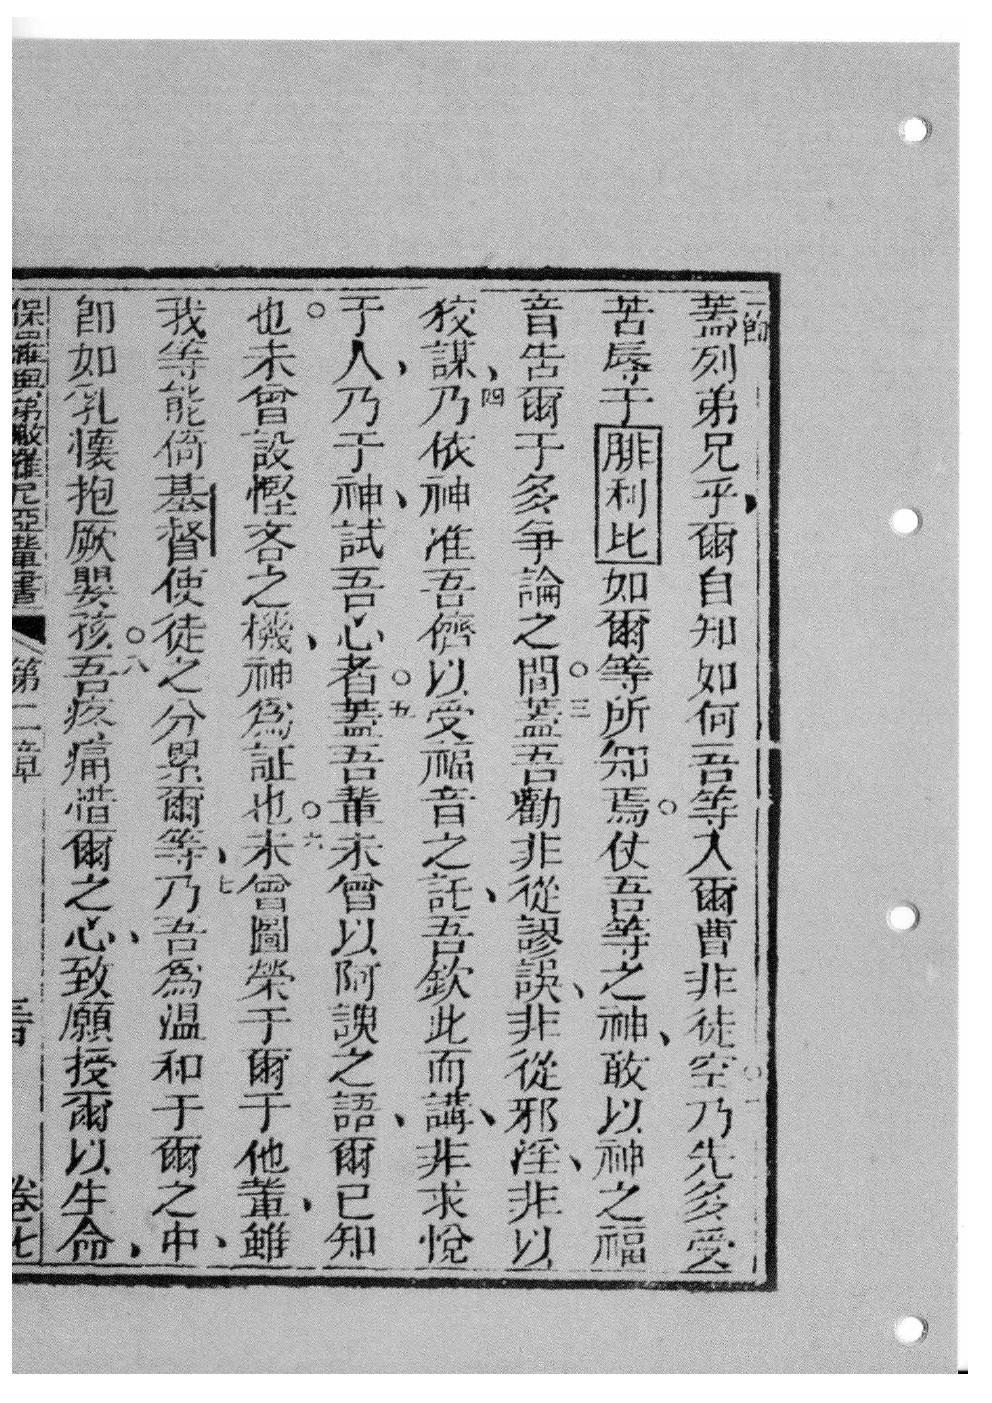 一節
蓋列弟兄乎、爾自知如何吾等入爾曹非徒空乃先多受
苦辱于腓利比如爾等所知焉。仗吾等之神、敢以神之福
音告爾于多爭論之間。三蓋吾勸非從謬誤、非從邪淫、非以
狡謀、四乃依神准吾儕以受福音之託、吾欽此而講、非求悅
于人、乃于神、試吾心者。五蓋吾輩未曾以阿諛之語、爾已知
也。未曾設慳吝之機、神為証也。六未曾圖榮于爾于他輩、雖
我等能倚基督使徒之分累爾等、七乃吾為溫和于爾之中、
即如乳懷抱厥嬰孩。八吾疼痛惜爾之心、致願授爾以生命、
保羅與弟撒羅尼亞輩書 第二章 卷七